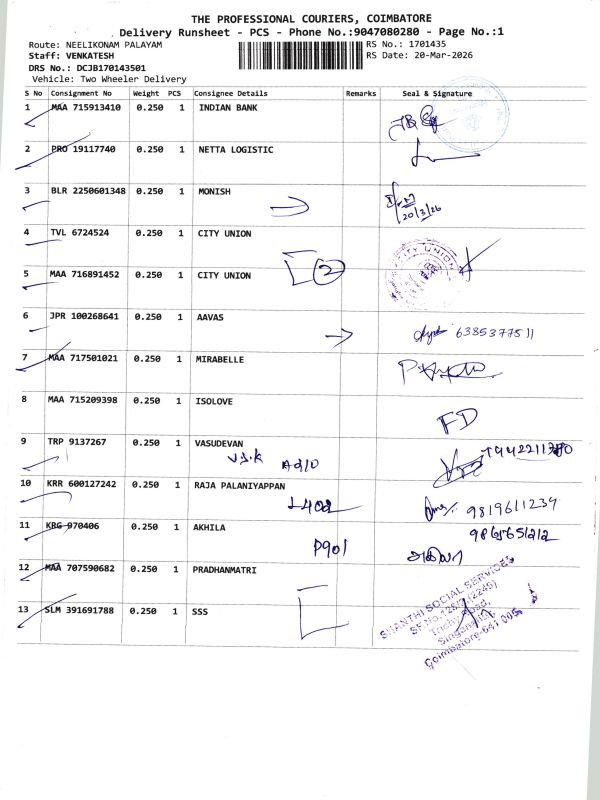 THE PROFESSIONAL COURIERS, COIMBATORE
Delivery Runsheet - PCS - Phone No.:9047080280 - Page No.:1
Route: NEELIKONAM PALAYAM
RS No.: 1701435
Staff: VENKATESH
RS Date: 20-Mar-2026
DRS No.: DCJB170143501
Vehicle: Two Wheeler Delivery
S No Consignment No Weight PCS Consignee Details Remarks Seal & Signature
1 MAA 715913410 0.250 1 INDIAN BANK
2 PRO 19117740 0.250 1 NETTA LOGISTIC
3 BLR 2250601348 0.250 1 MONISH
20/3/26
4 TVL 6724524 0.250 1 CITY UNION
CITY UNION
5 MAA 716891452 0.250 1 CITY UNION
2
6 JPR 100268641 0.250 1 AAVAS
6385377511
7 MAA 717501021 0.250 1 MIRABELLE
8 MAA 715209398 0.250 1 ISOLOVE
FD
9 TRP 9137267 0.250 1 VASUDEVAN
10 KRR 600127242 0.250 1 RAJA PALANIYAPPAN
9819611234
11 KRG 970406 0.250 1 AKHILA
P901
12 MAA 707590682 0.250 1 PRADHANMATRI
13 SLM 391691788 0.250 1 SSS
SHANTHI SOCIAL SERVICES
Trichy Road,
Singanallur,
Coimbatore-641 005